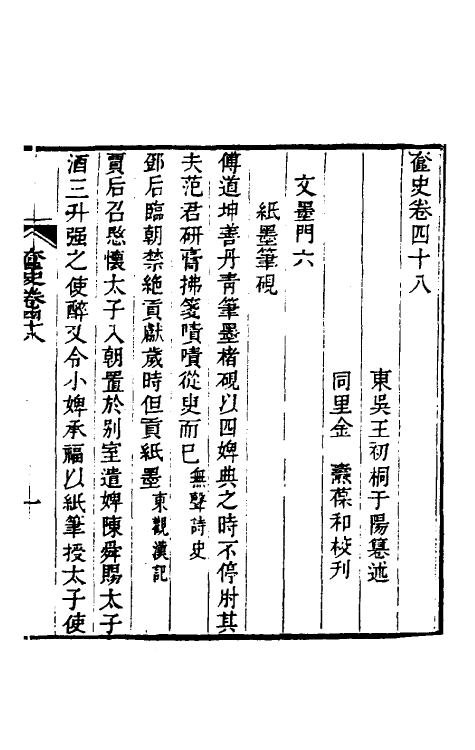 奩史卷四十八
東吳王初桐于陽纂述
同里金 爇葆和校刊
文墨門六
紙墨筆硯
傅道坤善丹青筆墨楮硯以四婢典之時不停肘其
夫范君研膏拂箋嘖嘖從史而已無聲詩史
鄧后臨朝禁絶貢獻歲時但貢紙墨東觀漢記
賈后召愍懷太子入朝置於别室遣婢陳舜賜太子
酒三升强之使醉又令小婢承福以紙筆授太子使
奩史卷四十八
一